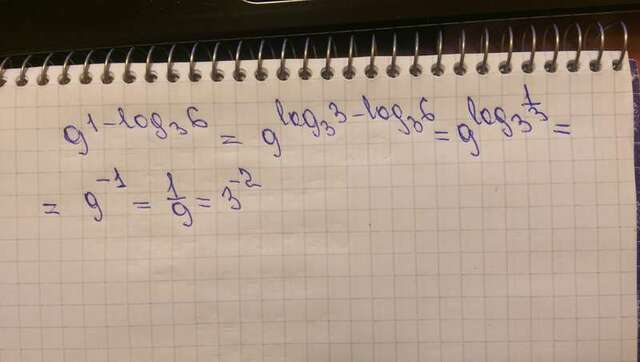 9^{1-log_3 6} = 9^{log_3 3 - log_3 6} = 9^{log_3 \frac{1}{3}} =
= 9^{-1} = \frac{1}{9} = 3^{-2}